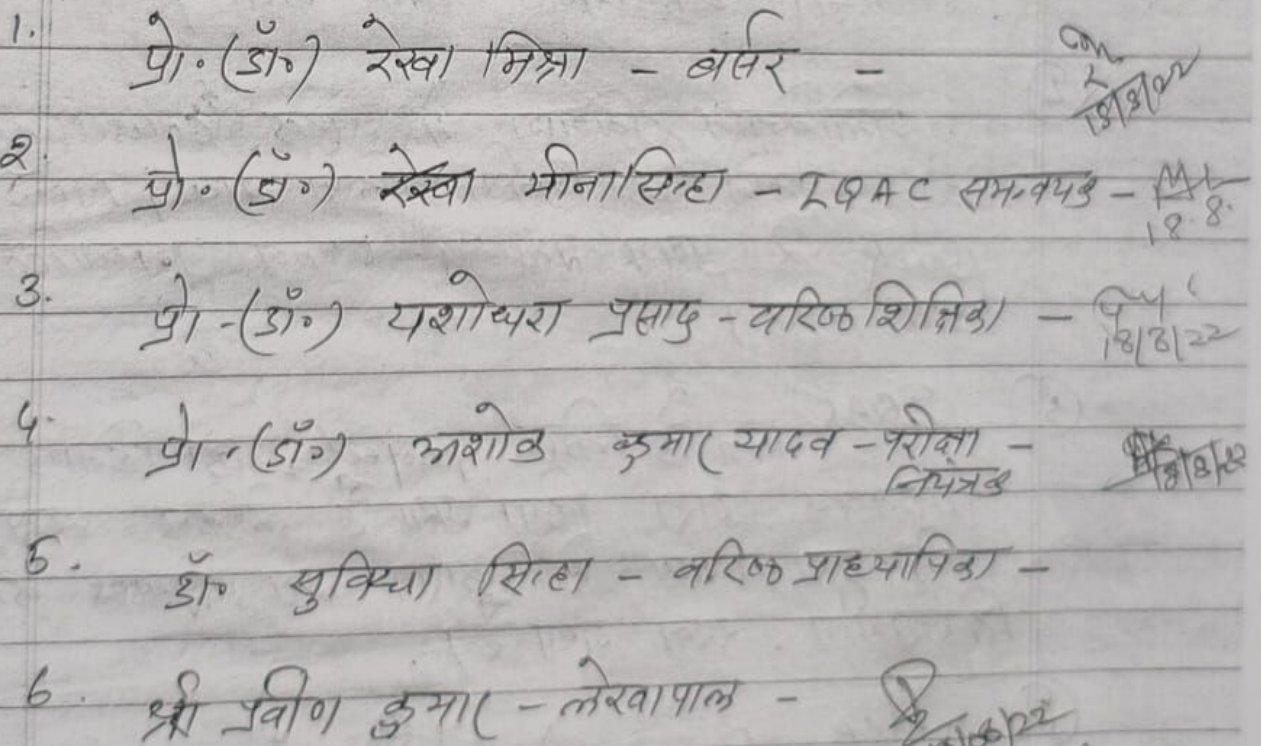 1. प्रो॰ (डॉ॰) रेखा मिश्रा - बर्सर - 18/8/22
2. प्रो॰ (डॉ॰) रेखा मीना सिन्हा - IQAC समन्वयक - 18.8.
3. प्रो - (डॉ॰) यशोधरा प्रसाद - वरिष्ठ शिक्षिका - 18/8/22
4. प्रो - (डॉ॰) अशोक कुमार यादव - परीक्षा - 18/8/22
नियंत्रक
5. डॉ॰ सुविधा सिन्हा - वरिष्ठ प्राध्यापिका -
6. श्री प्रवीण कुमार - लेखापाल - 18/08/22